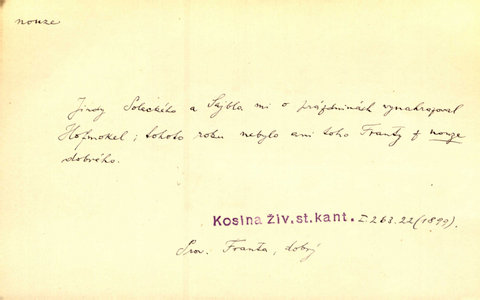 nouze
Jindy Soleckého a Sýbla mi o prázdninách vynahražoval
Hofmokel; tohoto roku nebylo ani toho Franty z nouze
dobrého.
Kosina živ. st. kant. I 263.22 (1899).
Srov. Franta, dobrý